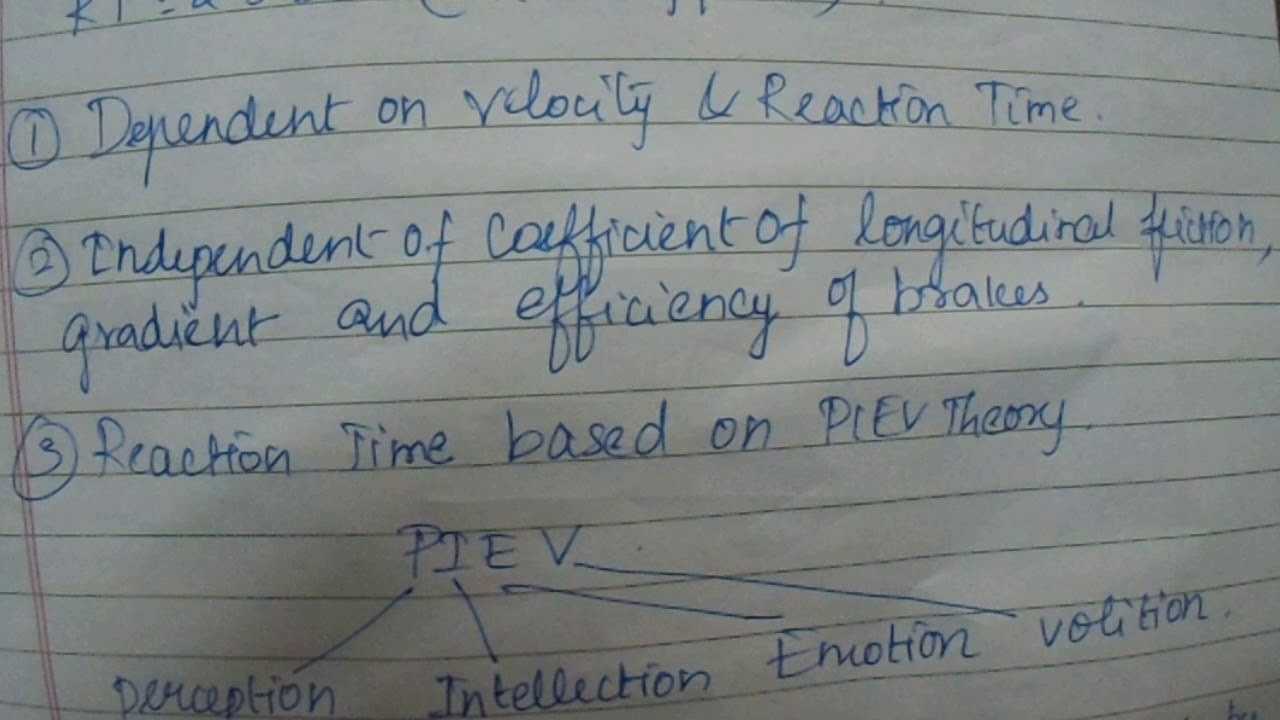 ① Dependent on velocity & Reaction Time.
② Independent of coefficient of longitudinal friction,
gradient and efficiency of brakes.
③ Reaction Time based on PIEV Theory.
PIEV
Perception Intellection Emotion volition.